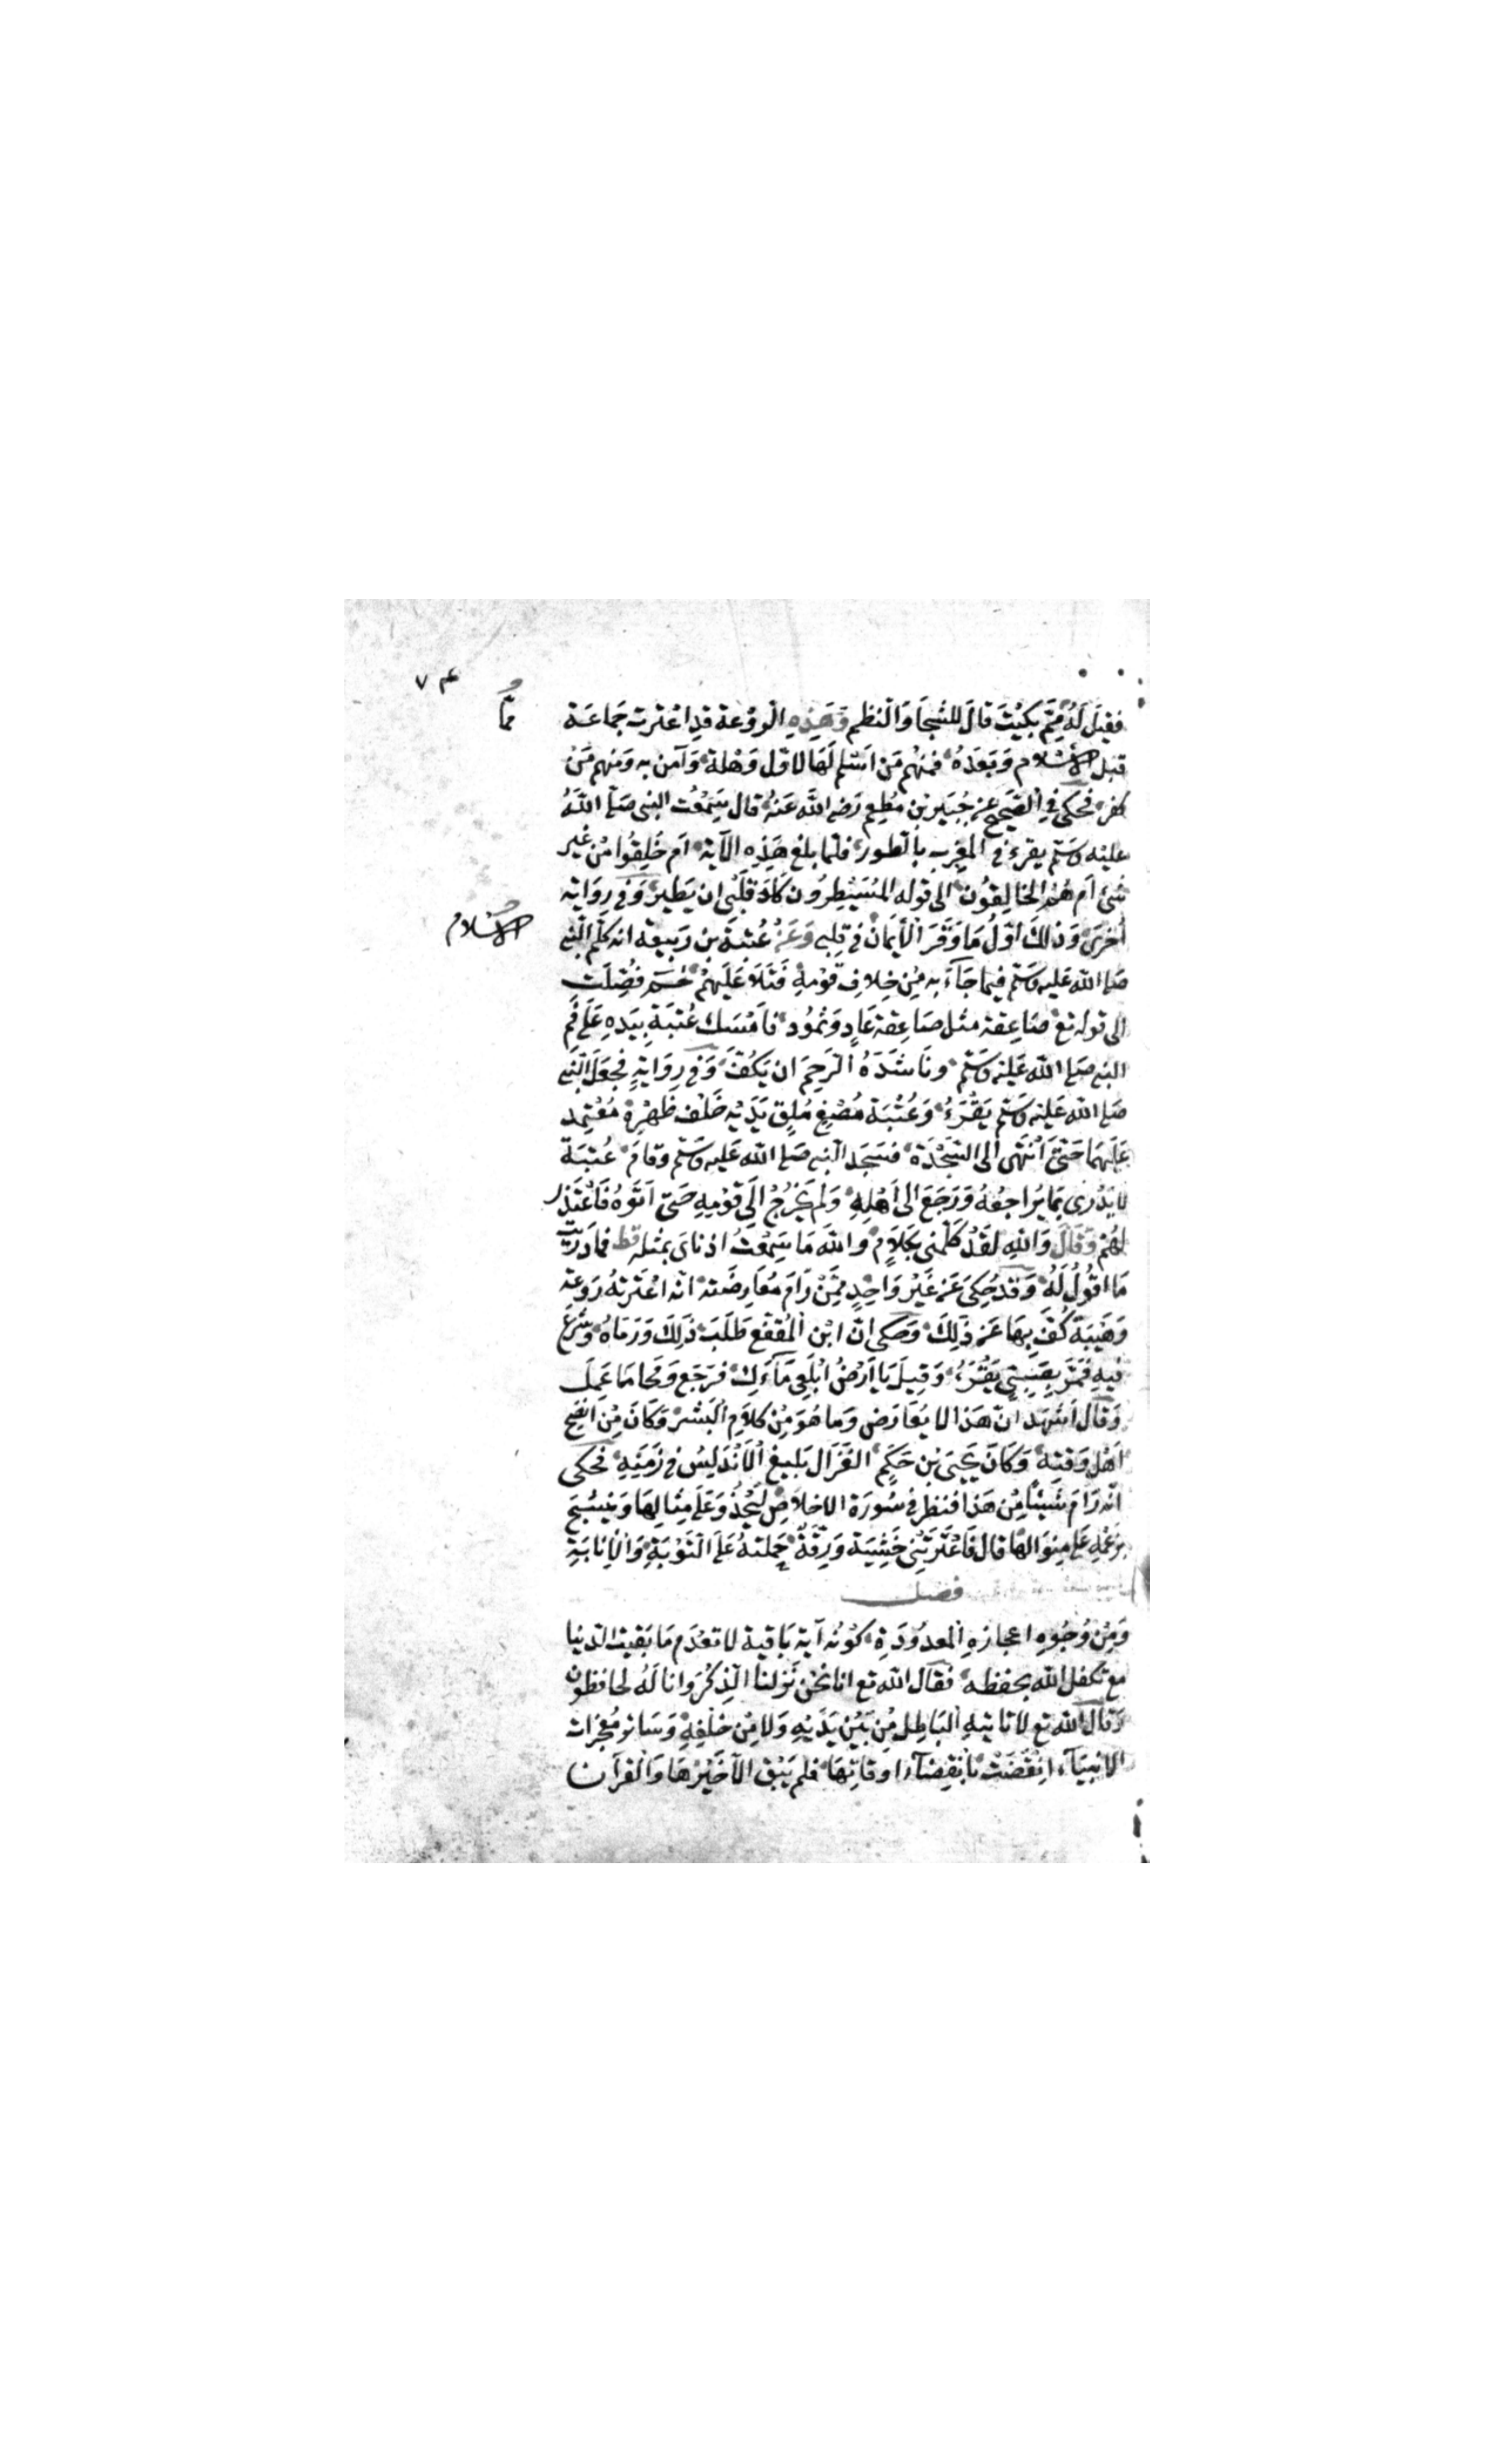 ٧٤
ممّا
فَقِيلَ لَهُ مِمَّ بَكَيْتَ قَالَ للشَّجَا وَالنَّظم وَهَذِهِ الرَوْعَة قَدِ اعْتَرت جَمَاعَة
قبل الاسْلام وَبَعْدَهُ فمنهُم مَن اَسْلم لَهَا لاوّل وَهْلة وَآمن به وَمنهم مَنْ
كفر فحكى في الصَحيح عَن جُبَير بْن مُطعِم رَضِي الله عَنهُ قال سَمِعْت النبي صَلَّى اللهُ
عليْه وَسَلَّم يقرء في المغرِب بالطور فلمّا بلغ هَذِه الآية اَم خُلِقُوا مِنْ غير
شَئ اَم هُمُ الخَالِقُون الى قوله المُسَيْطِرُون كَادَ قَلْبى ان يَطير وَفي رِوَاية
الاسْلام
اُخرَى وَذلِكَ أوّلُ مَا وَقَرَ الْاِيَمان في قلبى وَعَنْ عُتبَة بن رَبيعة انه كلّم النبي
صَلى الله عَليه وَسَلّم فيما جَآءَ به مِنْ خِلافِ قَوْمِه فَتَلَا عَلَيهمْ حم فُصِّلَت
الى قوله تع صَاعِقة مثل صَاعِقة عَادٍ وَثمُود فاَمْسَك عُتبَة بِيَدِهِ عَلَى فمِ
النبي صَلى الله عَليْه وَسَلّم وَنَاشَدَهُ الرَحِمَ ان يَكُفَّ وَفي رِوَايةٍ فجَعَلَ النَبي
صَلى الله عَليْه وَسَلّم يَقْرَءُ وَعُتْبَة مُصْغٍ مُلقٍ يَدَيْه خَلْفَ ظَهْرِهِ مُعْتمِد
عَلَيهمَا حَتّى انْتَهَى الى السَجْدَة فسَجَد النبي صَلى الله عَليه وَسَلّم وَقامَ عُتبَة
لا يَدْرى بمَا يُرَاجعُهُ وَرَجَعَ الى اَهْلِهِ وَلَم يَخرُجْ الَى قوْمِهِ حَتىّ اَتَوْهُ فَاعْتَذر
لهُمْ وَقَالَ وَاللهِ لقَدْ كلّمَنى بكَلَامٍ وَالله مَا سَمِعَتْ اذناىَ بمثله قط فمادَرَيْتُ
مَا اقُولُ لَهُ وَقد حُكِىَ عَن غَيْر وَاحِدٍ ممِّنْ رَامَ مُعَارضَته انّه اعْتَرَتهُ رَوعَة
وَهَيْبَةٌ كُفَّ بِهَا عَن ذَلِكَ وحكى انّ ابْن المُقفّع طَلَبَ ذَلِكَ وَرَمَاهُ وَشَرَعَ
فيهِ فَمَرَّ بِصَبىٍّ يَقْرَءُ وَقِيلَ يَا اَرْضُ ابْلَعِى مَآءَكِ فرَجَع وَمَحا مَا عَمِلَ
وَقال اَشْهَد انّ هَذا لا يُعَارض وَما هُوَ مِنْ كلَامِ البَشر وَكَانَ مِنْ افصَح
اَهْل وَقتِهِ وَكانَ يَحيَى بْن حَكَمٍ الغَزَال بَليغ الْاَنْدَلِسُ في زَمَنِهِ فحكى
انّه رَامَ شَيئًا مِن هَذا فنظر في سُورَة الاخلاصِ لِيَحْذُوَ عَلَى مِثالِهَا وَيَنْسُجَ
بزَعْمِهِ عَلى مِنوَالهَا قال فَاعْتَرَتْنى خَشيَة وَرِقَّة حَمَلتهُ عَلَى التَوْبَةِ وَالْاِنَابَةِ
فصل
وَمِنْ وُجُوهِ اعجازهِ المعدُودَةِ كوْنه آية بَاقية لا تعْدَم مَا بَقيَت الدّنيا
مع تكفل الله بحفظه فقال الله تع انا نحْن نَزلنا الذِكْرَ وَانا لَهُ لحافظون
وَقال الله تع لا تاتيهِ البَاطِل مِنْ بَيْن يَدَيْهِ وَلا مِن خَلْفِهِ وَسَائر مُعْجزات
الانبيَآء انْقَضَتْ بانْقِضآء اوقاتِهَا فلم يَبْق الّا خَبَرُهَا وَالقرآن